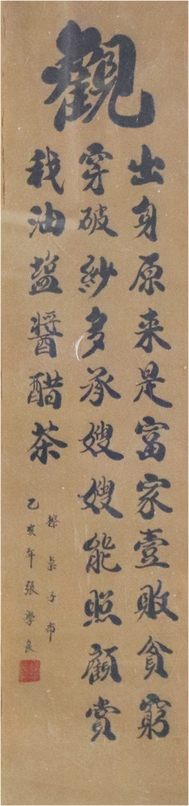 觀
出身原来是富家壹敗貧窮
穿破紗多承嫂嫂能照顧賞
我油盐醬醋茶
擦桌子布
乙亥年張學良